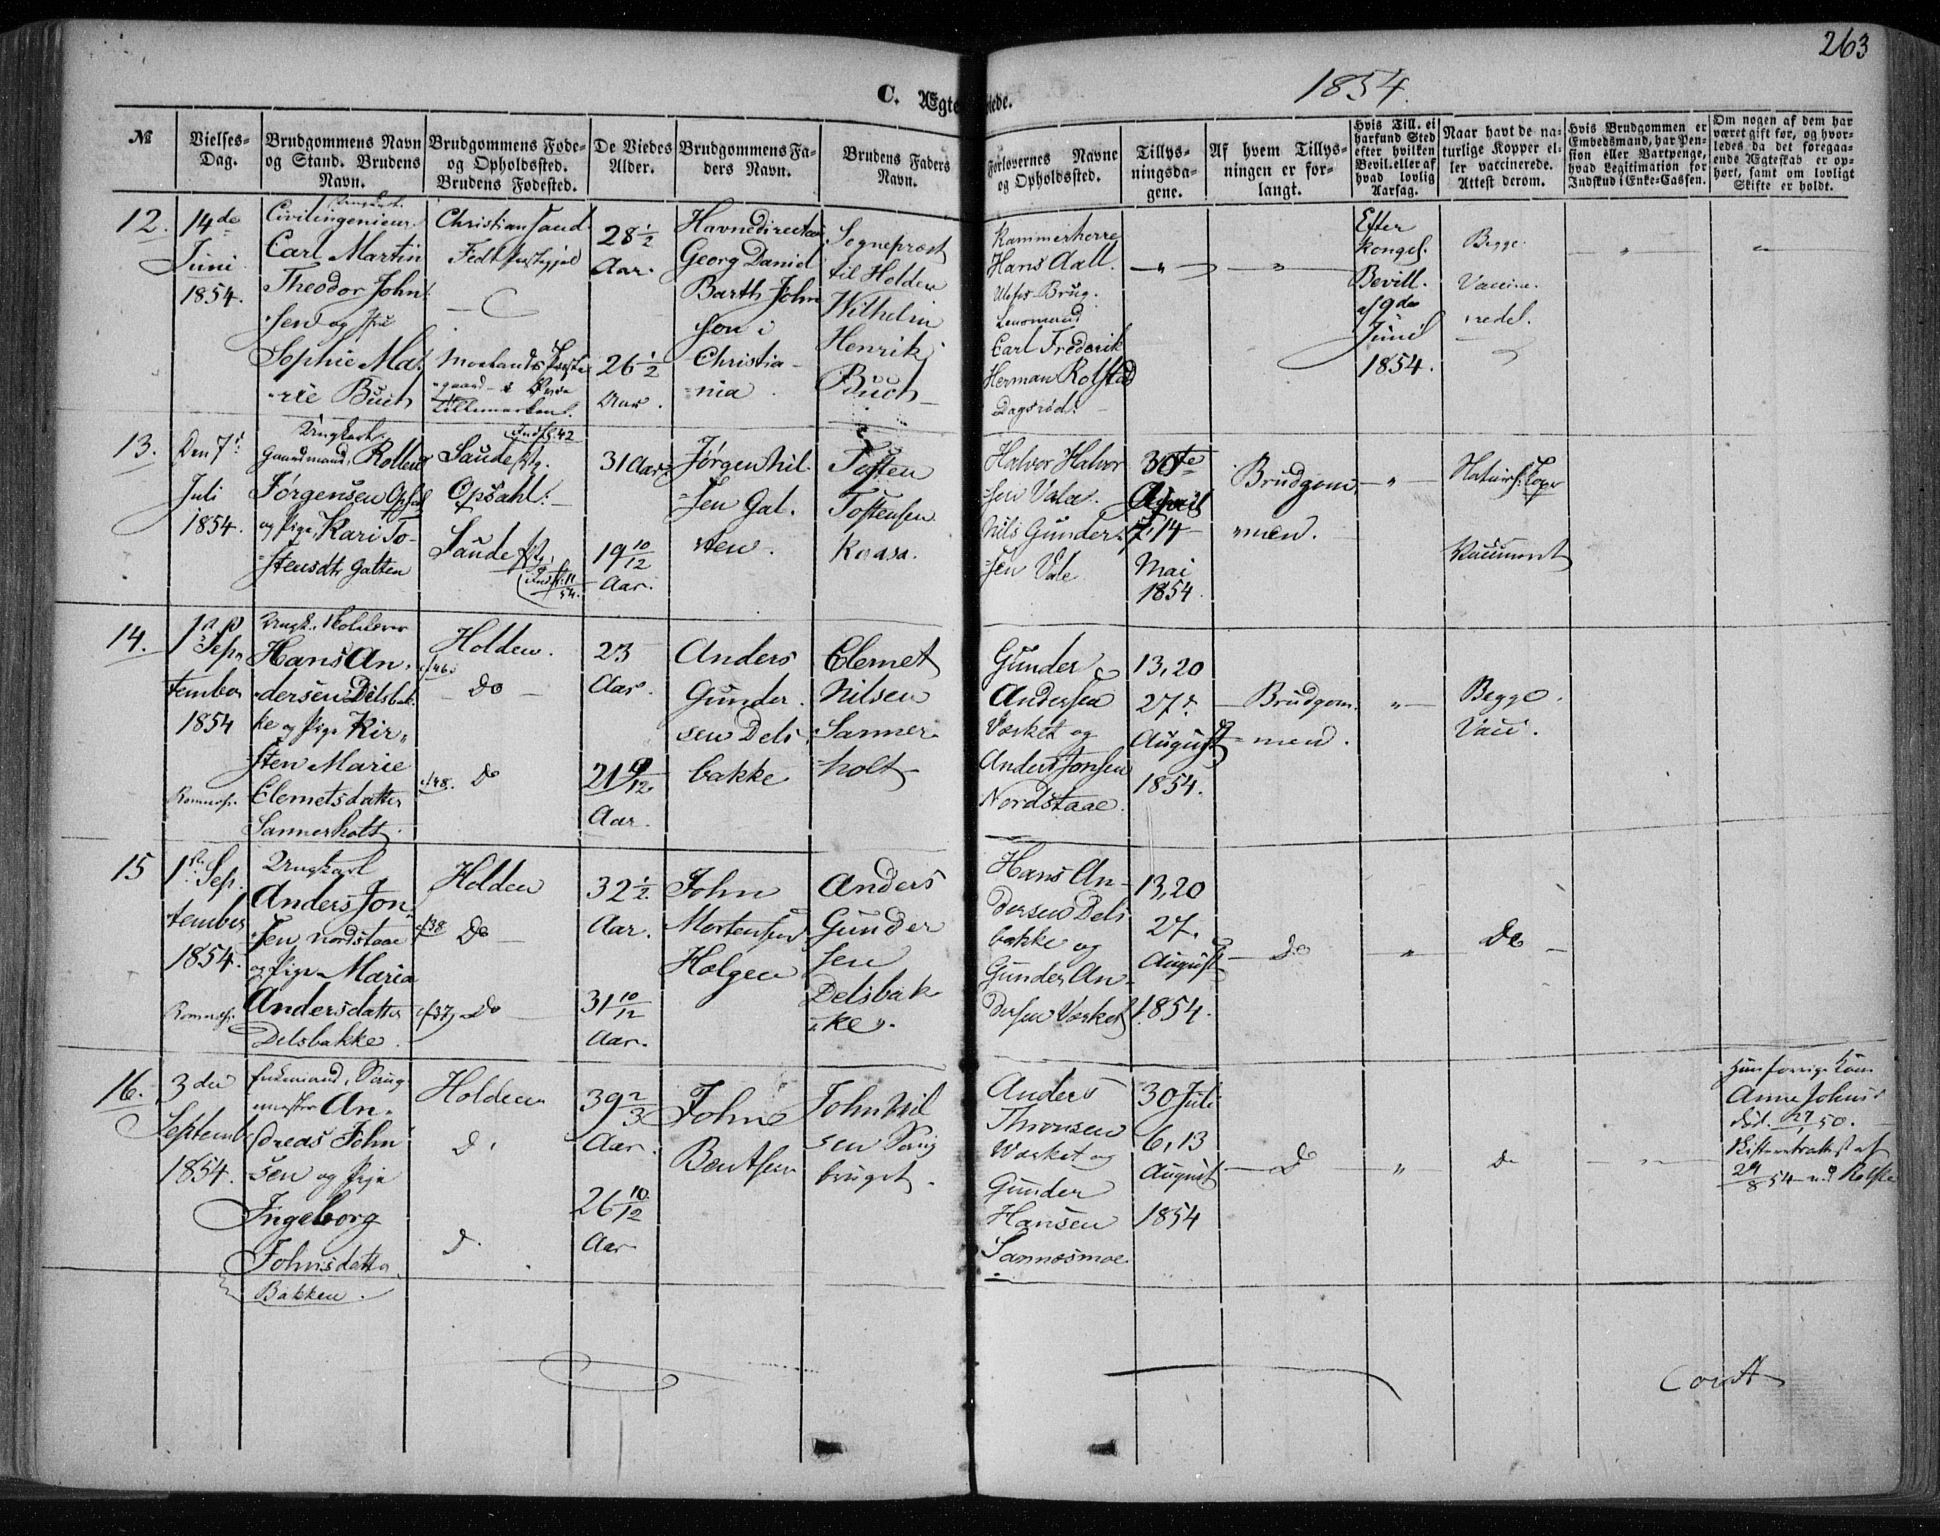 263
1854.
C. Ægteviede.
№
Vielses-
Dag.
Brudgommens Navn
og Stand. Brudens
Navn.
Brudgommens Føde-
og Opholdssted.
Brudens Fødested.
De Viedes
Alder.
Brudgommens Fa-
ders Navn.
Brudens Faders
Navn.
Forlovernes Navne
og Opholdssted.
Tillys-
ningsda-
gene.
Af hvem Tillys-
ningen er for-
langt.
Hvis Till. ei
har fund Sted
efter hvilken
Bevil. eller af
hvad lovlig
Aarsag.
Naar havt de na-
turlige Kopper el-
ler vaccinerede.
Attest derom.
Hvis Brudgommen er
Embedsmand, har Pen-
sion eller Vartpenge,
hvad Legitimation for
Indskud i Enke-Cassen.
Om nogen af dem har
været gift før, og hvor-
ledes da det foregaa-
ende Ægteskab er op-
hørt, samt om lovligt
Skifte er holdt.
12.
14de
Juni
1854.
Ungkarl
Civilingenieur
Carl Martin
Theodor John
sen og
Sophie Ma
rie Buch
Christiansand
Moelands Præste
gaard
Lillemarken
28 1/2
Aar.
26 1/2
Aar.
Havnedirecteur
Georg Daniel
Barth John
son i
Christia
nia
Sognepræst
til Holden
Wilhelm
Henrik
Buch
Kammerherre
Hans Aall
Ulefos Brug.
Lensmand
Carl Frederik
Herman Rolstad
Dagsrød.
Efter
Kongel.
Bevill.
af 9de
Juni
1854.
Begge
Vaccine
redel.
13.
Den 7de
Juli
1854.
Ungkarl
Gaardmand Rollend
Jørgensen Opsal
og Pige Kari To-
stensdtr Galten
Indfl. 42
Saude Pg.
Opsahl.
Saude Pg.
31 Aar
19 10/12
Aar.
Jørgen Nil
sen Gal
ten.
Tosten
Tostensen
Kaasa.
Halvor Halvor
sen Vala.
Nils Gunder
sen Vale
30te
April
7, 14
Mai
1854.
Brudgom
men.
Naturl. Kopr
Vaccineret
14.
1ste Sep
tember
1854
Ungk.
Hans An
dersen Delsbak
ke og Pige Kir
sten Marie
Clemetsdatter
Sannerholt
Romnes.
Holden.
Do
Do
23
Aar.
21 9/12
Aar.
Anders
Gunder
sen Dels
bakke
Clemet
Nilsen
Sanner
holt
Gunder
Andersen
Værket og
Anders Jonsen
Nordstaae
13, 20
27de
August
1854.
Brudgom
men.
Begge
Vacc.
15
1ste Sep
tember
1854.
Romnes.
Ungkarl
Anders Jon
sen Nordstaae
og Pige Maria
Andersdatter
Delsbakke.
Holden
Do
Do
32 1/2
Aar.
31 10/12
Aar.
John
Mortensen
Holgen
Anders
Gunder
sen
Delsbak
ke.
Hans An
dersen Dels
bakke og
Gunder An
dersen Værket
13, 20
27.
August
1854.
Do
Do
16.
3die
Septemb
1854.
Enkemand, Saug
mester An
dreas John
sen og Pige
Ingeborg
Johnsdatter
Bakken.
Holden
D.
D.
39 2/3
Aar.
26 10/12
Aar
John
Bentsen
John Nil
sen Saug
bruget.
Anders
Thronsen
Værket og
Gunder
Hansen
Sannesmoe
30 Juli
6, 13
August
1854
Do
Do
Hans forrige Kone
Anne Johnsd.
død 50.
Skifteretsattest af
24/8 54